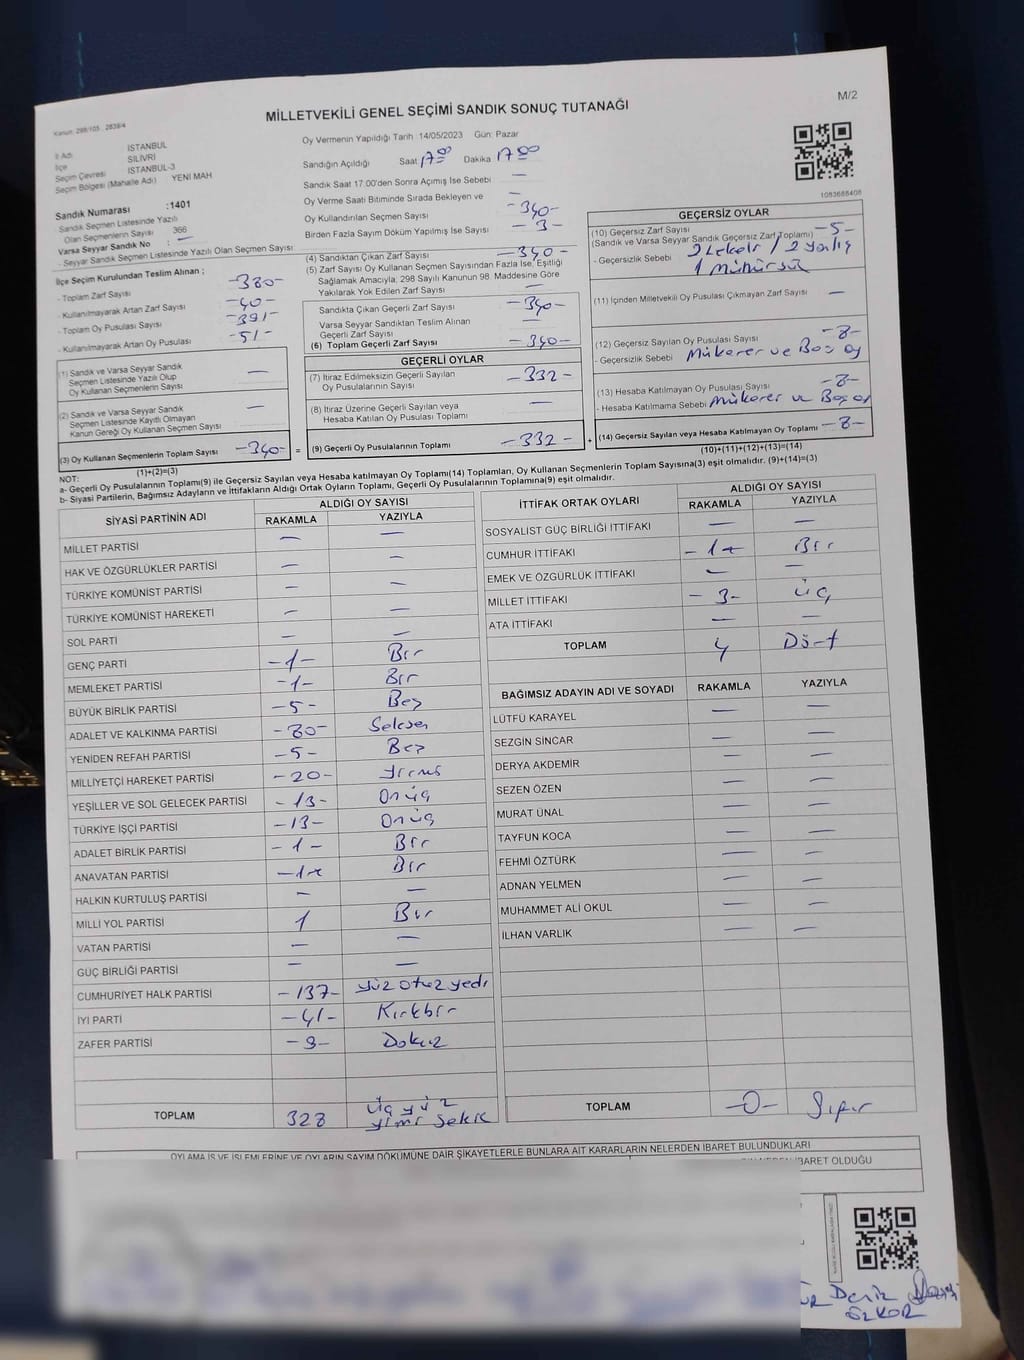 MİLLETVEKİLİ GENEL SEÇİMİ SANDIK SONUÇ TUTANAĞI
M/2
Kanun: 298/105 2839/4
İl Adı İSTANBUL
İlçe SİLİVRİ
Seçim Çevresi İSTANBUL-3
Seçim Bölgesi (Mahalle Adı) YENİ MAH
Oy Vermenin Yapıldığı Tarih :14/05/2023 Gün: Pazar
Sandığın Açıldığı Saat 17 00 Dakika 17 00
Sandık Saat 17.00'den Sonra Açımış İse Sebebi —
Oy Verme Saati Bitiminde Sırada Bekleyen ve —
Oy Kullandırılan Seçmen Sayısı -340-
Birden Fazla Sayım Döküm Yapılmış İse Sayısı -3-
1093688408
Sandık Numarası :1401
Sandık Seçmen Listesinde Yazılı
Olan Seçmenlerin Sayısı 366
Varsa Seyyar Sandık No : —
- Seyyar Sandık Seçmen Listesinde Yazılı Olan Seçmen Sayısı
İlçe Seçim Kurulundan Teslim Alınan ;
- Toplam Zarf Sayısı -380-
- Kullanılmayarak Artan Zarf Sayısı -40-
- Toplam Oy Pusulası Sayısı -391-
- Kullanılmayarak Artan Oy Pusulası -51-
(1) Sandık ve Varsa Seyyar Sandık
Seçmen Listesinde Yazılı Olup
Oy Kullanan Seçmenlerin Sayısı —
(2) Sandık ve Varsa Seyyar Sandık
Seçmen Listesinde Kayıtlı Olmayan
Kanun Gereği Oy Kullanan Seçmen Sayısı —
(3) Oy Kullanan Seçmenlerin Toplam Sayısı -340- =
(1)+(2)=(3)
(4) Sandıktan Çıkan Zarf Sayısı -340-
(5) Zarf Sayısı Oy Kullanan Seçmen Sayısından Fazla İse, Eşitliği
Sağlamak Amacıyla; 298 Sayılı Kanunun 98. Maddesine Göre
Yakılarak Yok Edilen Zarf Sayısı —
Sandıkta Çıkan Geçerli Zarf Sayısı -340-
Varsa Seyyar Sandıktan Teslim Alınan
Geçerli Zarf Sayısı —
(6) Toplam Geçerli Zarf Sayısı -340-
GEÇERLİ OYLAR
(7) İtiraz Edilmeksizin Geçerli Sayılan
Oy Pusulalarının Sayısı -332-
(8) İtiraz Üzerine Geçerli Sayılan veya
Hesaba Katılan Oy Pusulası Toplamı —
(9) Geçerli Oy Pusulalarının Toplamı -332- +
GEÇERSİZ OYLAR
(10) Geçersiz Zarf Sayısı
(Sandık ve Varsa Seyyar Sandık Geçersiz Zarf Toplamı) -5-
- Geçersizlik Sebebi 2 Lekeli / 2 yanlış
1 Mühürsüz
(11) İçinden Milletvekili Oy Pusulası Çıkmayan Zarf Sayısı —
(12) Geçersiz Sayılan Oy Pusulası Sayısı -8-
- Geçersizlik Sebebi Mükerer ve Boş oy
(13) Hesaba Katılmayan Oy Pusulası Sayısı -8-
- Hesaba Katılmama Sebebi Mükerer ve Boş oy
(14) Geçersiz Sayılan veya Hesaba Katılmayan Oy Toplamı -8-
(10)+(11)+(12)+(13)=(14)
NOT:
a- Geçerli Oy Pusulalarının Toplamı(9) ile Geçersiz Sayılan veya Hesaba katılmayan Oy Toplamı(14) Toplamları, Oy Kullanan Seçmenlerin Toplam Sayısına(3) eşit olmalıdır. (9)+(14)=(3)
b- Siyasi Partilerin, Bağımsız Adayların ve İttifakların Aldığı Ortak Oyların Toplamı, Geçerli Oy Pusulalarının Toplamına(9) eşit olmalıdır.
SİYASİ PARTİNİN ADI ALDIĞI OY SAYISI
RAKAMLA YAZIYLA
MİLLET PARTİSİ — —
HAK VE ÖZGÜRLÜKLER PARTİSİ — —
TÜRKİYE KOMÜNİST PARTİSİ — —
TÜRKİYE KOMÜNİST HAREKETİ — —
SOL PARTİ — —
GENÇ PARTİ -1- Bir
MEMLEKET PARTİSİ -1- Bir
BÜYÜK BİRLİK PARTİSİ -5- Beş
ADALET VE KALKINMA PARTİSİ -80- Seksen
YENİDEN REFAH PARTİSİ -5- Beş
MİLLİYETÇİ HAREKET PARTİSİ -20- yirmi
YEŞİLLER VE SOL GELECEK PARTİSİ -13- Onüç
TÜRKİYE İŞÇİ PARTİSİ -13- Onüç
ADALET BİRLİK PARTİSİ -1- Bir
ANAVATAN PARTİSİ -1- Bir
HALKIN KURTULUŞ PARTİSİ — —
MİLLİ YOL PARTİSİ 1 Bir
VATAN PARTİSİ — —
GÜÇ BİRLİĞİ PARTİSİ — —
CUMHURİYET HALK PARTİSİ -137- yüz otuz yedi
İYİ PARTİ -41- Kırkbir
ZAFER PARTİSİ -9- Dokuz
TOPLAM 328 üç yüz
yimi Sekiz
İTTİFAK ORTAK OYLARI ALDIĞI OY SAYISI
RAKAMLA YAZIYLA
SOSYALİST GÜÇ BİRLİĞİ İTTİFAKI — —
CUMHUR İTTİFAKI -1- Bir
EMEK VE ÖZGÜRLÜK İTTİFAKI — —
MİLLET İTTİFAKI -3- üç
ATA İTTİFAKI — —
TOPLAM 4 Dört
BAĞIMSIZ ADAYIN ADI VE SOYADI RAKAMLA YAZIYLA
LÜTFÜ KARAYEL — —
SEZGİN SİNCAR — —
DERYA AKDEMİR — —
SEZEN ÖZEN — —
MURAT ÜNAL — —
TAYFUN KOCA — —
FEHMİ ÖZTÜRK — —
ADNAN YELMEN — —
MUHAMMET ALİ OKUL — —
İLHAN VARLIK — —
TOPLAM -0- Sıfır
OYLAMA İŞ VE İŞLEMLERİNE VE OYLARIN SAYIM DÖKÜMÜNE DAİR ŞİKAYETLERLE BUNLARA AİT KARARLARIN NELERDEN İBARET BULUNDUKLARI
İBARET OLDUĞU
Deniz
ÖZKOR